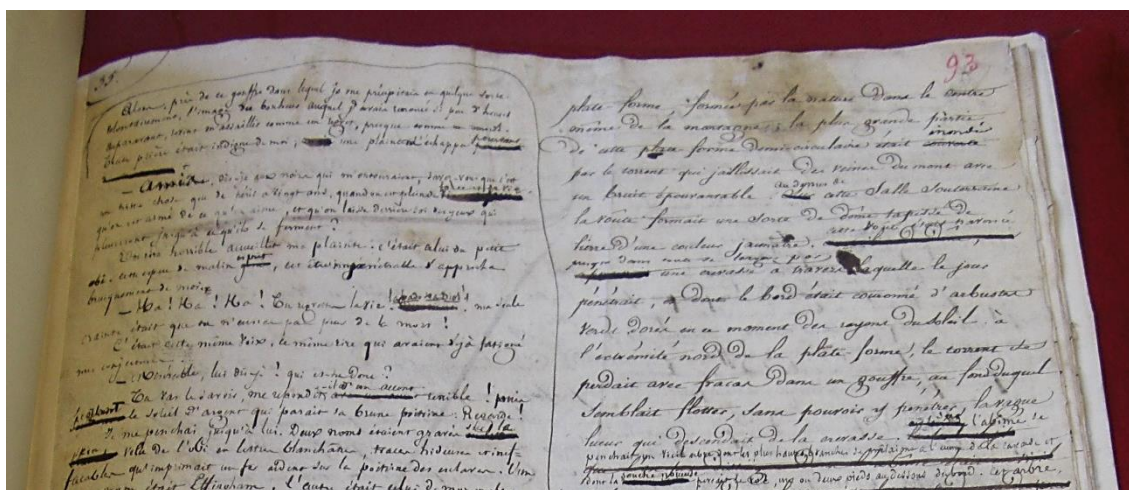 35.
93
Alors, près de ce gouffre dans lequel je me précipitais en quelque sorte
volontairement, l'image du bonheur auquel j'avais renoncé si peu d'heures
auparavant, revint m'assaillir comme un regret, presque comme un
Toute prière était indigne de moi, une plainte m'échappa pourtant
— Amis, dis-je aux noirs qui m'entouraient, savez-vous que c'est
une triste chose que de périr à vingt ans, quand on est plein de
qu'on est aimé de ce qu'on aime, et qu'on laisse derrière soi des yeux qui
pleureront jusqu'à ce qu'ils se ferment.
Un rire horrible accueillit ma plainte. c'était celui du petit
obi. cette espèce de malin esprit, cet être impénétrable s'approcha
brusquement de moi.
— Ha! Ha! Ha! Tu regrettes la vie! ma seule
crainte était que tu n'eusses pas peur de la mort!
C'était cette même voix, ce même rire qui avaient déjà fatigué
mes conjectures.
— Misérable, lui dis-je, qui es-tu donc?
— Tu vas le savoir, me répondit-il d'un accent terrible! puis
écartant le soleil d'argent qui parait sa brune poitrine: Regarde!
Je me penchai jusqu'à lui. Deux noms étaient gravés sur le
sein velu de l'obi en lettres blanchâtres, traces hideuses et inef-
façables qu'imprimait un fer ardent sur la poitrine des esclaves. L'un
était Effingham, l'autre était celui de
plate-forme formée par la nature dans le centre
même de la montagne; la plus grande partie
de cette plate forme demi-circulaire était inondée
par le torrent qui jaillissait des veines du mont avec
un bruit épouvantable. au dessus de cette Salle Souterraine
la voûte formait une sorte de dôme tapissé de
lierre d'une couleur jaunâtre. cette voûte était traversée
presque dans toute sa largeur par
une crevasse à travers laquelle le jour
pénétrait, et dont le bord était couronné d'arbustes
verds, dorés en ce moment des rayons du soleil. à
l'extrémité nord de la plate-forme, le torrent se
perdait avec fracas dans un gouffre, au fond duquel
semblait flotter, sans pouvoir y pénétrer, la vague
lueur qui descendait de la crevasse. sur l'abîme se
penchait un vieil arbre, dont les plus hautes branches se mêlaient à l'écume de la cascade et
dont la souche noueuse perçait le roc, un ou deux pieds au dessous du bord. Cet arbre,